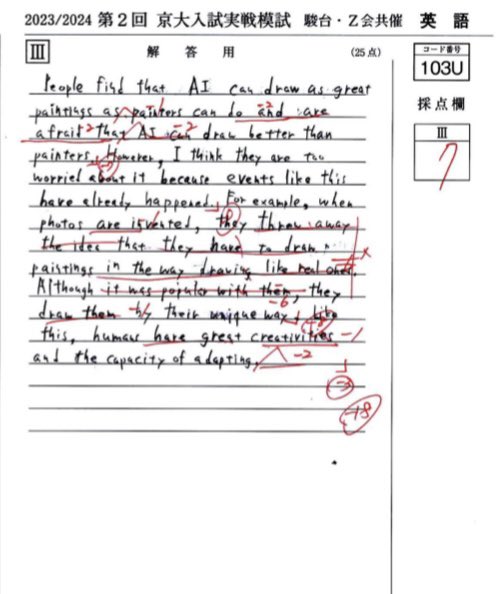 2023/2024 第2回 京大入試実戦模試 駿台・Z会共催 英語
III 解答用 (25点)
コード番号
103U
採点欄
III
7
People find that AI can draw as great
paintings as painters can do and are
afraid that AI can draw better than
painters. However, I think they are too
worried about it because events like this
have already happened. For example, when
photos are invented, they threw away
the idea that they have to draw
paintings in the way drawing like real ones.
Although it was popular with them, they
draw them by their unique way. Like
this, humans have great creativities
and the capacity of adapting.
-2
-2
-2
-6
-1
-2
-18